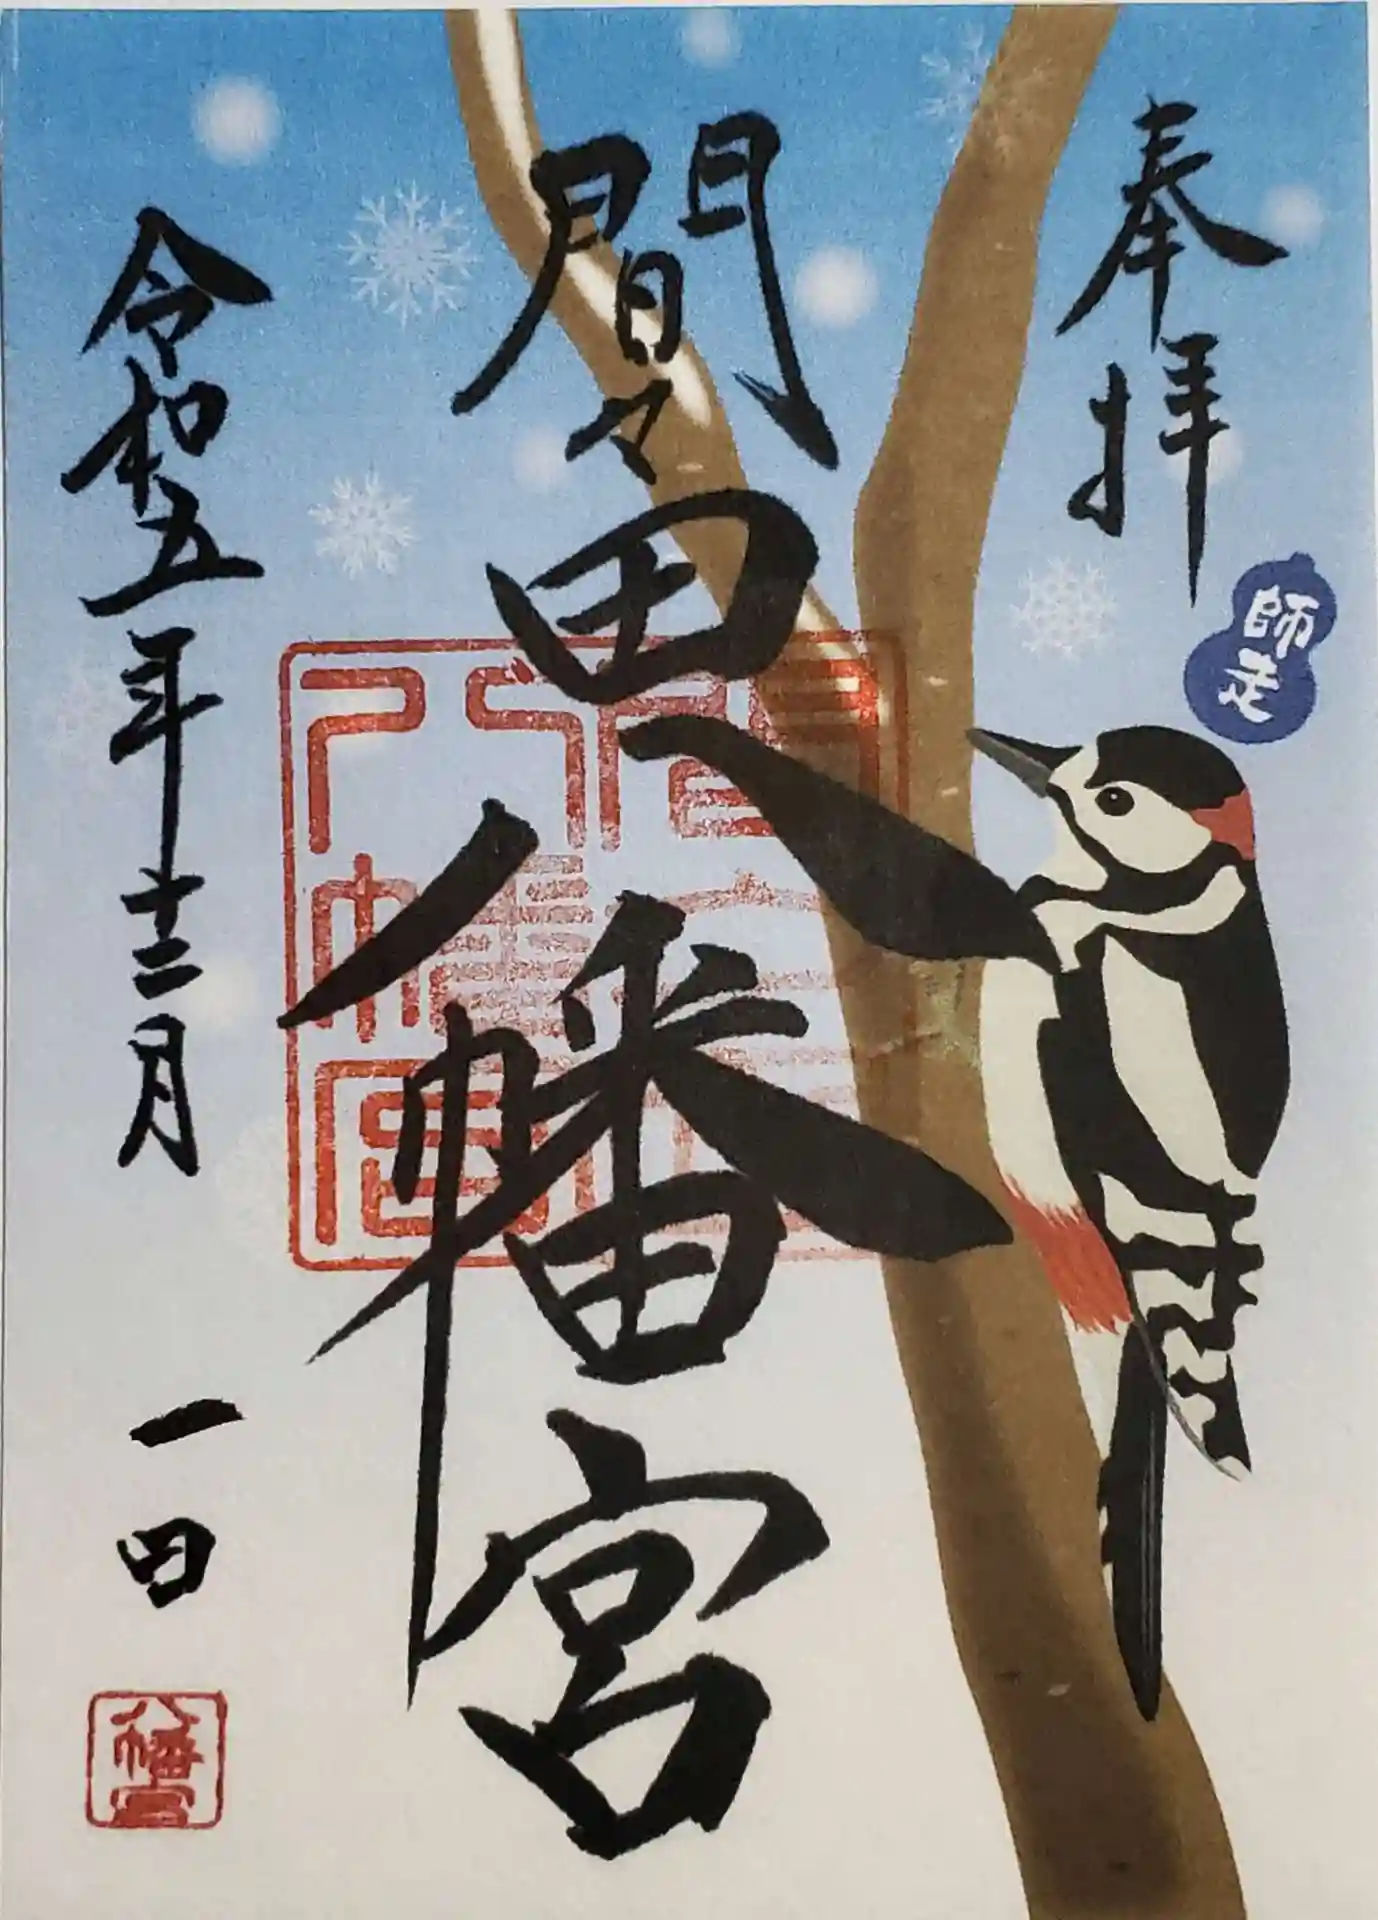 奉拝
師走
間々田八幡宮
令和五年十二月 一日
八幡宮